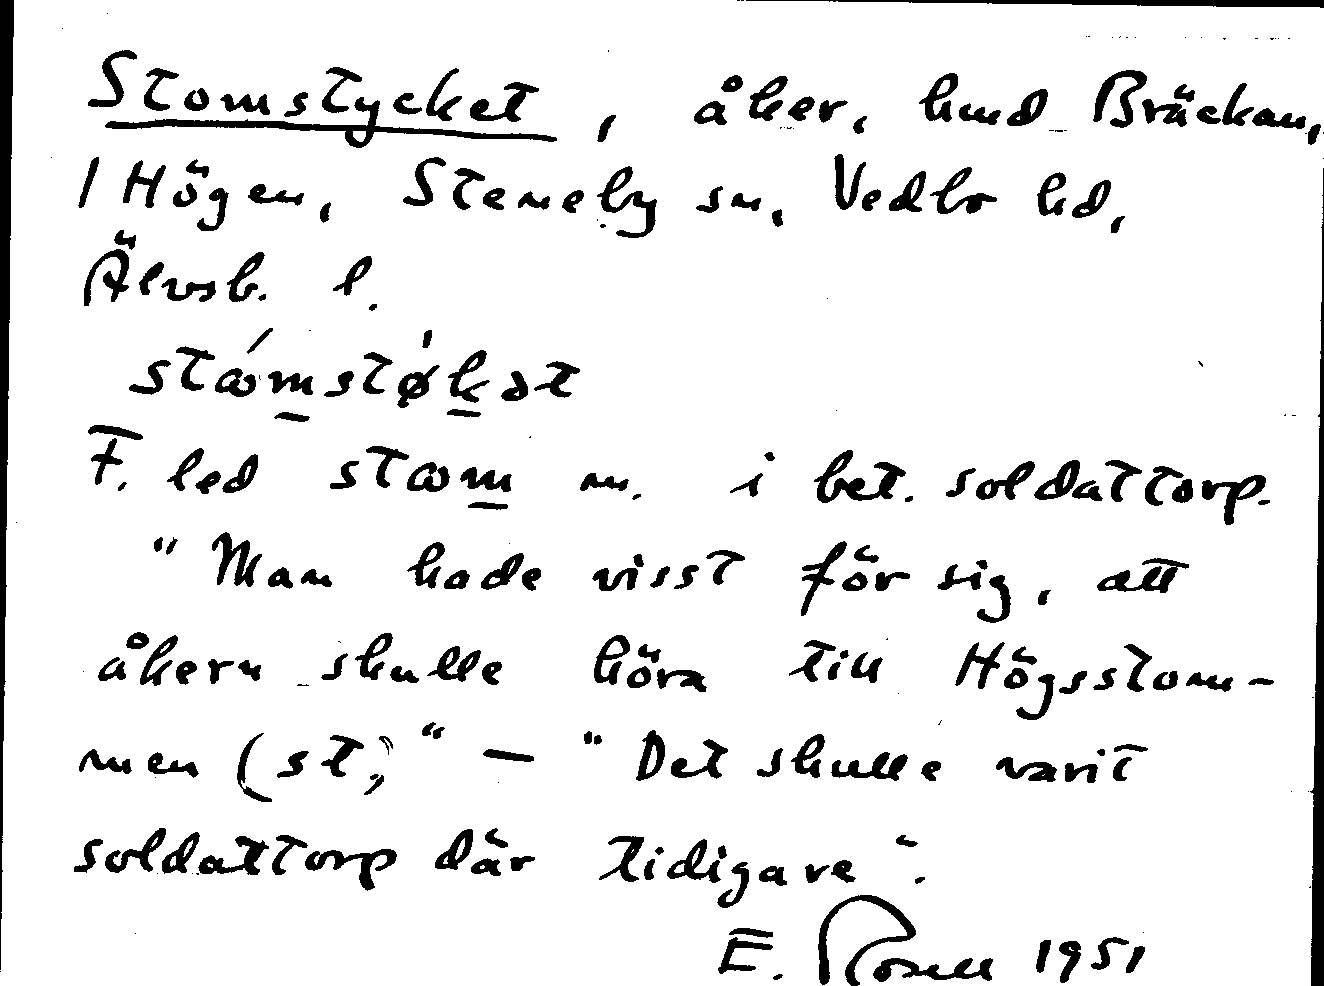 Stomstycket, åker, hmd Bräckan,
1 Högen, Steneby sn, Vedbo hd,
Älvsb. l.
stǿmstø̍kət
F. led stωm m. i bet. soldattorp.
"Man hade visst för sig, att
åkern skulle höra till Högsstom-
men (st)," — "Det skulle varit
soldattorp där tidigare".
E. Rosell 1951